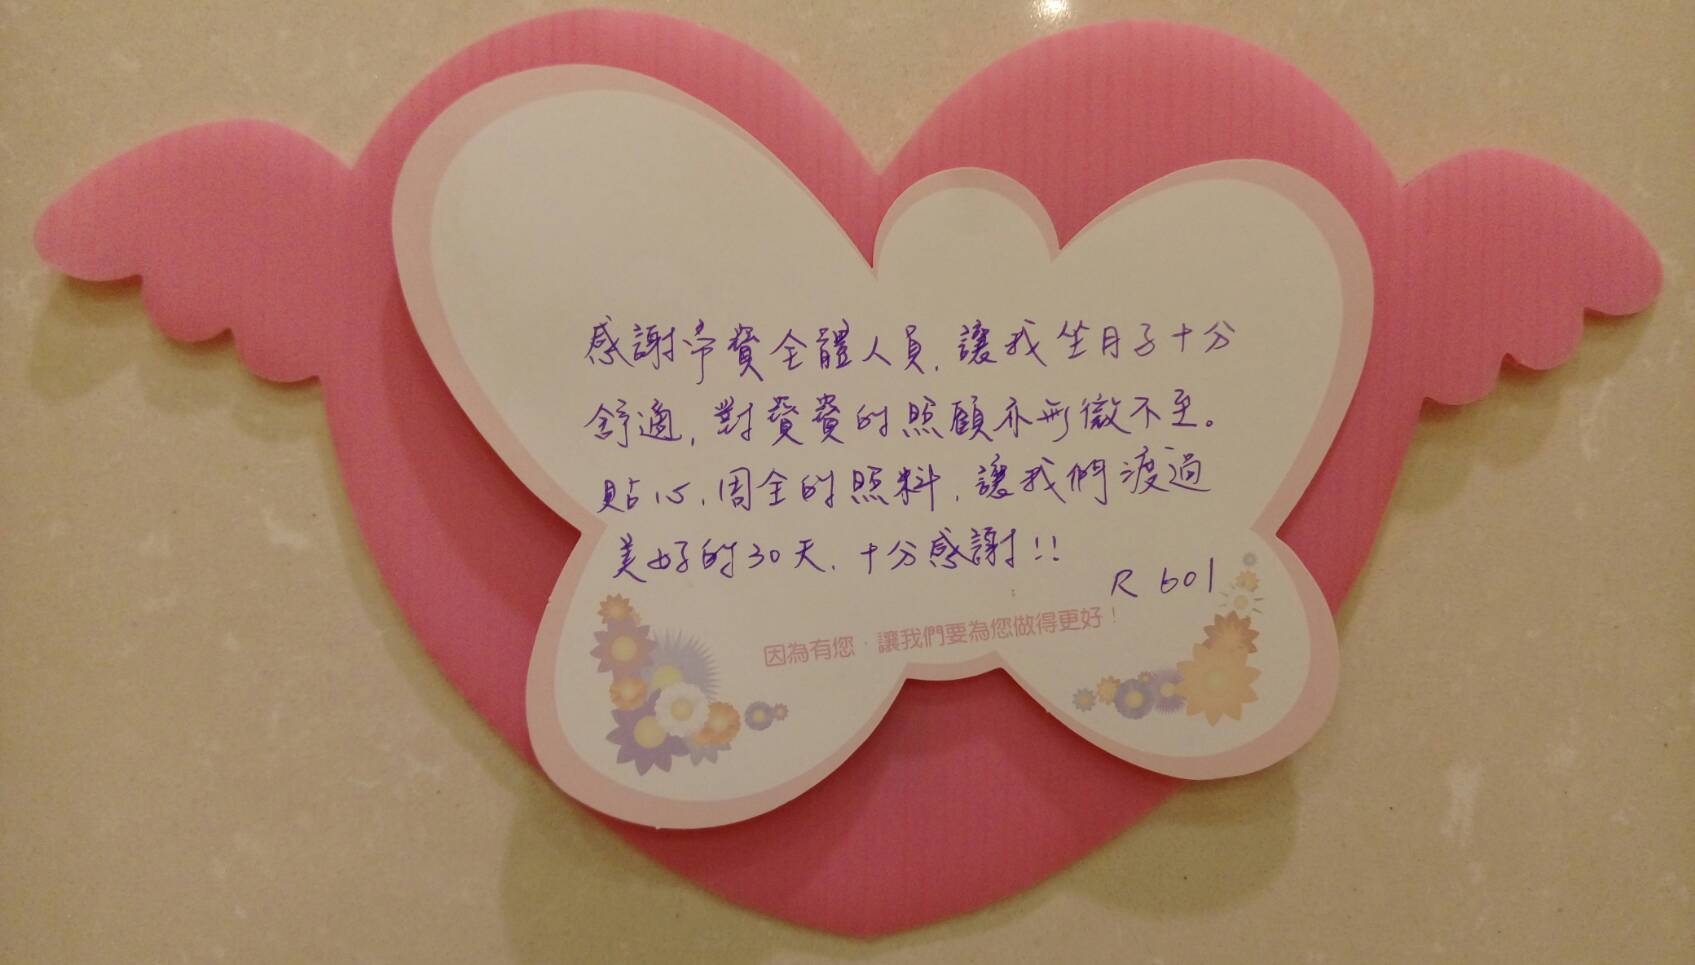 感謝帝寶全體人員,讓我坐月子十分
舒適,對寶寶的照顧亦無微不至。
貼心、周全的照料,讓我們渡過
美好的30天,十分感謝!!
R 601
因為有您,讓我們要為您做得更好!